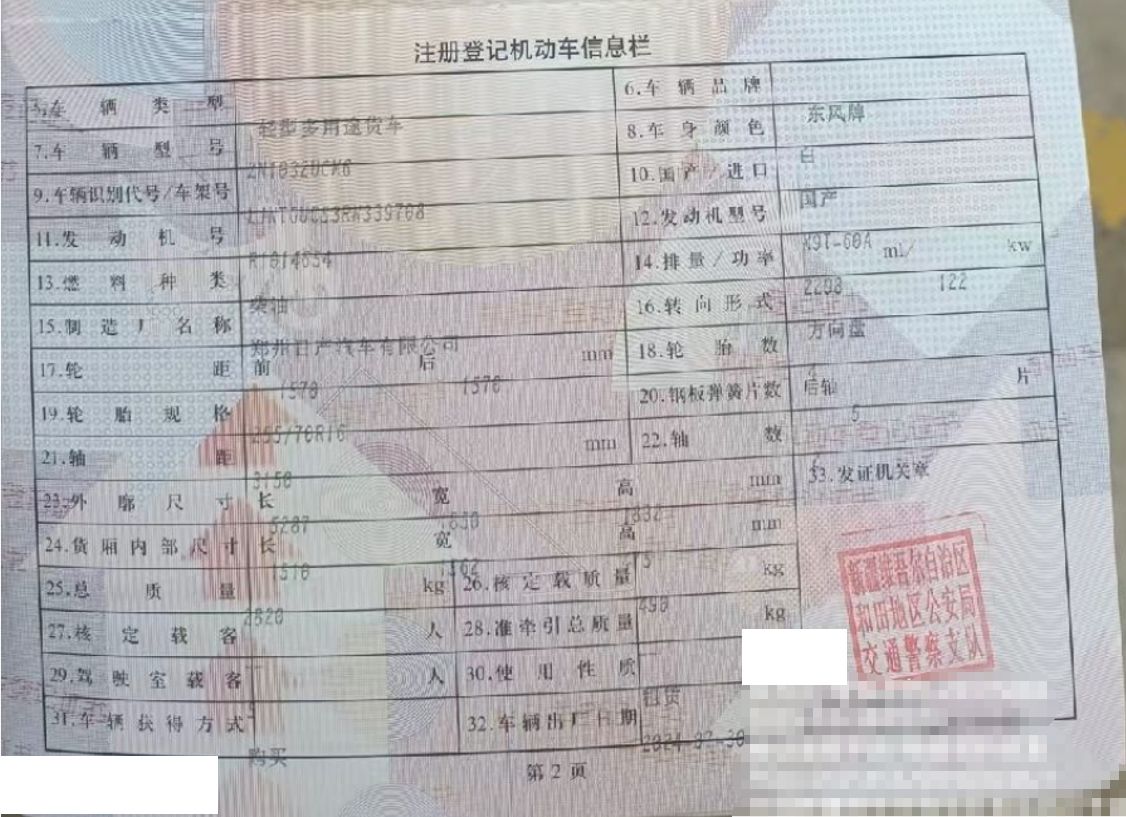 注册登记机动车信息栏
5.车辆类型 轻型多用途货车 6.车辆品牌 东风牌
7.车辆型号 ZN1032UCK6 8.车身颜色 白
9.车辆识别代号/车架号 10.国产/进口 国产
11.发动机号 12.发动机型号 M9T-60A
13.燃料种类 柴油 14.排量/功率 2298 ml/ 122 kw
15.制造厂名称 郑州日产汽车有限公司 16.转向形式 方向盘
17.轮距 前 1570 后 1570 mm 18.轮胎数 4
19.轮胎规格 255/70R16 20.钢板弹簧片数 后轴 5 片
21.轴距 3150 mm 22.轴数
23.外廓尺寸 长 5287 宽 1850 高 mm 33.发证机关章
24.货厢内部尺寸 长 1510 宽 1562 高 mm
25.总质量 kg 26.核定载质量 490 kg
27.核定载客 人 28.准牵引总质量 kg
29.驾驶室载客 人 30.使用性质
31.车辆获得方式 购买 32.车辆出厂日期
新疆维吾尔自治区
和田地区公安局
交通警察支队
第2页